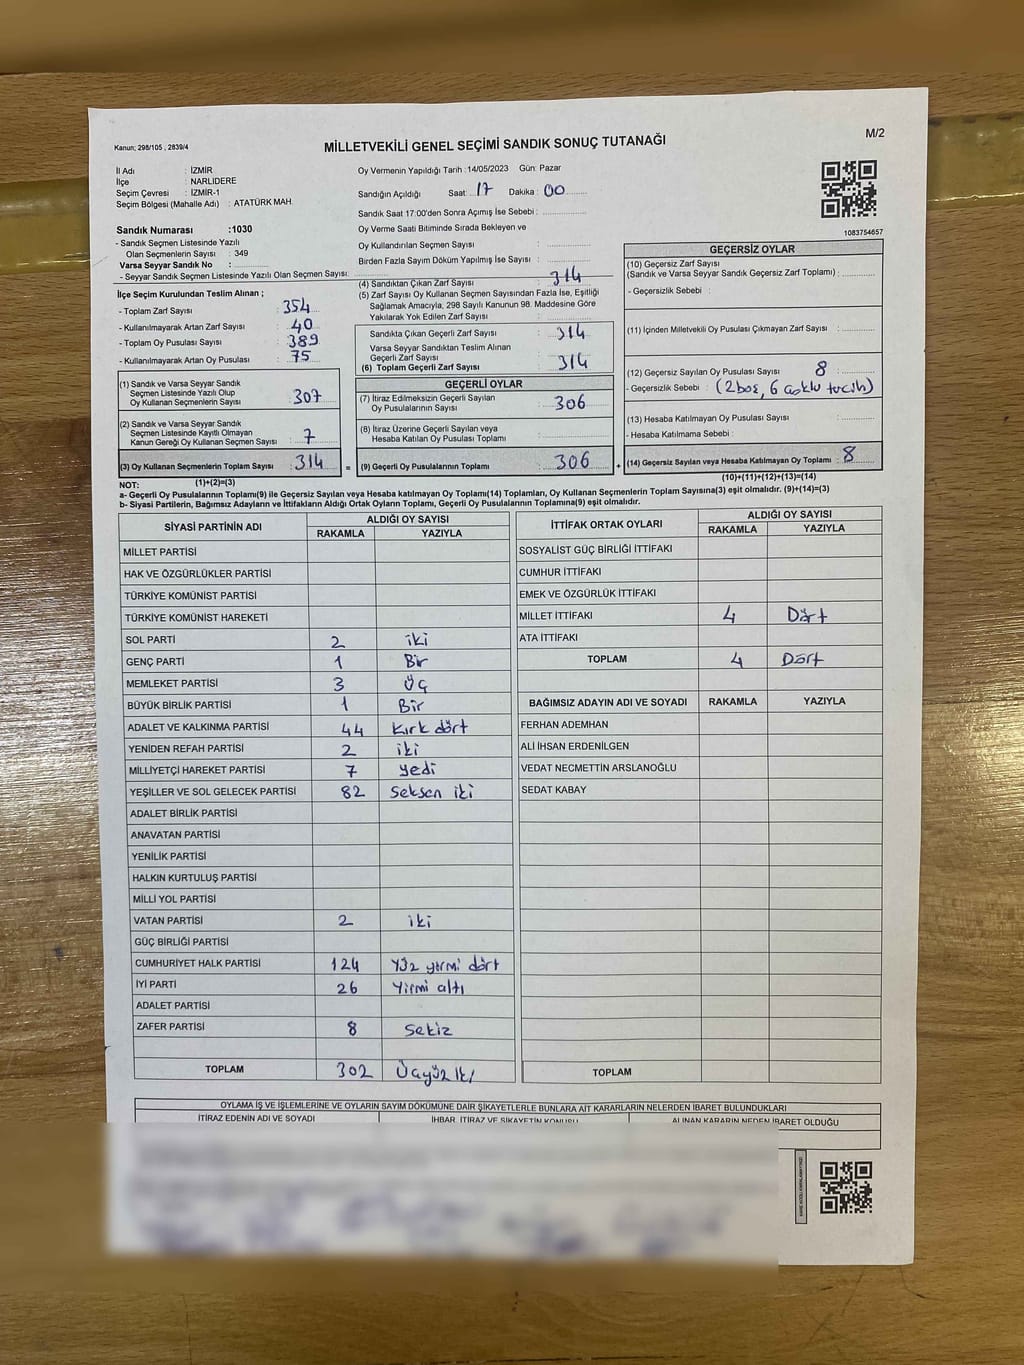 Kanun; 298/105 , 2839/4
MİLLETVEKİLİ GENEL SEÇİMİ SANDIK SONUÇ TUTANAĞI
M/2
İl Adı : İZMİR
İlçe : NARLIDERE
Seçim Çevresi : İZMİR-1
Seçim Bölgesi (Mahalle Adı) : ATATÜRK MAH.
Oy Vermenin Yapıldığı Tarih : 14/05/2023 Gün: Pazar
Sandığın Açıldığı Saat: 17 Dakika : 00
Sandık Saat 17:00'den Sonra Açımış İse Sebebi :
Oy Verme Saati Bitiminde Sırada Bekleyen ve
Oy Kullandırılan Seçmen Sayısı :
Birden Fazla Sayım Döküm Yapılmış İse Sayısı :
1083754657
Sandık Numarası :1030
- Sandık Seçmen Listesinde Yazılı
Olan Seçmenlerin Sayısı : 349
Varsa Seyyar Sandık No :
- Seyyar Sandık Seçmen Listesinde Yazılı Olan Seçmen Sayısı:
İlçe Seçim Kurulundan Teslim Alınan ;
- Toplam Zarf Sayısı : 354
- Kullanılmayarak Artan Zarf Sayısı : 40
- Toplam Oy Pusulası Sayısı : 389
- Kullanılmayarak Artan Oy Pusulası : 75
(1) Sandık ve Varsa Seyyar Sandık
Seçmen Listesinde Yazılı Olup
Oy Kullanan Seçmenlerin Sayısı : 307
(2) Sandık ve Varsa Seyyar Sandık
Seçmen Listesinde Kayıtlı Olmayan
Kanun Gereği Oy Kullanan Seçmen Sayısı : 7
(3) Oy Kullanan Seçmenlerin Toplam Sayısı : 314 =
(1)+(2)=(3)
(4) Sandıktan Çıkan Zarf Sayısı : 314
(5) Zarf Sayısı Oy Kullanan Seçmen Sayısından Fazla İse, Eşitliği
Sağlamak Amacıyla, 298 Sayılı Kanunun 98. Maddesine Göre
Yakılarak Yok Edilen Zarf Sayısı :
Sandıkta Çıkan Geçerli Zarf Sayısı : 314
Varsa Seyyar Sandıktan Teslim Alınan
Geçerli Zarf Sayısı :
(6) Toplam Geçerli Zarf Sayısı : 314
GEÇERLİ OYLAR
(7) İtiraz Edilmeksizin Geçerli Sayılan
Oy Pusulalarının Sayısı : 306
(8) İtiraz Üzerine Geçerli Sayılan veya
Hesaba Katılan Oy Pusulası Toplamı :
(9) Geçerli Oy Pusulalarının Toplamı : 306 +
GEÇERSİZ OYLAR
(10) Geçersiz Zarf Sayısı
(Sandık ve Varsa Seyyar Sandık Geçersiz Zarf Toplamı) :
- Geçersizlik Sebebi :
(11) İçinden Milletvekili Oy Pusulası Çıkmayan Zarf Sayısı :
(12) Geçersiz Sayılan Oy Pusulası Sayısı : 8
- Geçersizlik Sebebi : (2boş, 6 çoklu tercih)
(13) Hesaba Katılmayan Oy Pusulası Sayısı :
- Hesaba Katılmama Sebebi :
(14) Geçersiz Sayılan veya Hesaba Katılmayan Oy Toplamı : 8
(10)+(11)+(12)+(13)=(14)
NOT:
a- Geçerli Oy Pusulalarının Toplamı(9) ile Geçersiz Sayılan veya Hesaba katılmayan Oy Toplamı(14) Toplamları, Oy Kullanan Seçmenlerin Toplam Sayısına(3) eşit olmalıdır. (9)+(14)=(3)
b- Siyasi Partilerin, Bağımsız Adayların ve İttifakların Aldığı Ortak Oyların Toplamı, Geçerli Oy Pusulalarının Toplamına(9) eşit olmalıdır.
SİYASİ PARTİNİN ADI ALDIĞI OY SAYISI
RAKAMLA YAZIYLA
MİLLET PARTİSİ
HAK VE ÖZGÜRLÜKLER PARTİSİ
TÜRKİYE KOMÜNİST PARTİSİ
TÜRKİYE KOMÜNİST HAREKETİ
SOL PARTİ 2 iki
GENÇ PARTİ 1 Bir
MEMLEKET PARTİSİ 3 Üç
BÜYÜK BİRLİK PARTİSİ 1 Bir
ADALET VE KALKINMA PARTİSİ 44 Kırk dört
YENİDEN REFAH PARTİSİ 2 iki
MİLLİYETÇİ HAREKET PARTİSİ 7 yedi
YEŞİLLER VE SOL GELECEK PARTİSİ 82 Seksen iki
ADALET BİRLİK PARTİSİ
ANAVATAN PARTİSİ
YENİLİK PARTİSİ
HALKIN KURTULUŞ PARTİSİ
MİLLİ YOL PARTİSİ
VATAN PARTİSİ 2 iki
GÜÇ BİRLİĞİ PARTİSİ
CUMHURİYET HALK PARTİSİ 124 Yüz yirmi dört
İYİ PARTİ 26 Yirmi altı
ADALET PARTİSİ
ZAFER PARTİSİ 8 Sekiz
TOPLAM 302 Üçyüz iki
İTTİFAK ORTAK OYLARI ALDIĞI OY SAYISI
RAKAMLA YAZIYLA
SOSYALİST GÜÇ BİRLİĞİ İTTİFAKI
CUMHUR İTTİFAKI
EMEK VE ÖZGÜRLÜK İTTİFAKI
MİLLET İTTİFAKI 4 Dört
ATA İTTİFAKI
TOPLAM 4 Dört
BAĞIMSIZ ADAYIN ADI VE SOYADI RAKAMLA YAZIYLA
FERHAN ADEMHAN
ALİ İHSAN ERDENİLGEN
VEDAT NECMETTİN ARSLANOĞLU
SEDAT KABAY
TOPLAM
OYLAMA İŞ VE İŞLEMLERİNE VE OYLARIN SAYIM DÖKÜMÜNE DAİR ŞİKAYETLERLE BUNLARA AİT KARARLARIN NELERDEN İBARET BULUNDUKLARI
İTİRAZ EDENİN ADI VE SOYADI İHBAR, İTİRAZ VE ŞİKAYETİN KONUSU ALINAN KARARIN NEDEN İBARET OLDUĞU